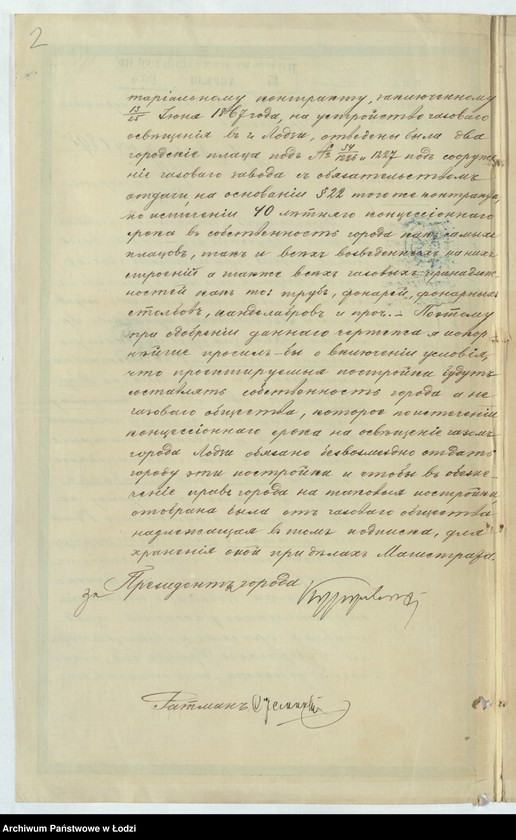 2
таріальному контракту, заключенному
13/25 Іюня 1867 года, на устройство газоваго
освѣщенія въ г. Лодзи, отведены были два
городскіе плаца подъ № 54/1226 и 1227 подъ сооруже
ніе газоваго завода съ обязательствомъ
отдачи, на основаніи § 22 того же контракта,
по истеченіи 40 лѣтняго концессіоннаго
срока въ собственность города какъ самыхъ
плацовъ, такъ и всѣхъ возведенныхъ на нихъ
строеній а также всѣхъ газовыхъ принадлеж
ностей какъ то: трубъ, фонарей, фонарныхъ
столбовъ, канделабровъ и проч. – Поэтому
при одобреніи даннаго чертежа я покор
нѣйше просилъ-бы о включеніи условія,
что проектируемыя постройки будутъ
составлять собственность города а не
газоваго общества, которое по истеченіи
концессіоннаго срока на освѣщеніе газомъ
города Лодзи обязано безвозмездно отдать
городу эти постройки и чтобы въ обезпе-
ченіе правъ города на таковыя постройки,
отобрана была отъ газоваго общества
надлежащая въ томъ подписка, для
храненія оной при дѣлахъ Магистрата.
за Президентъ города
Гатманъ
Archiwum Państwowe w Łodzi